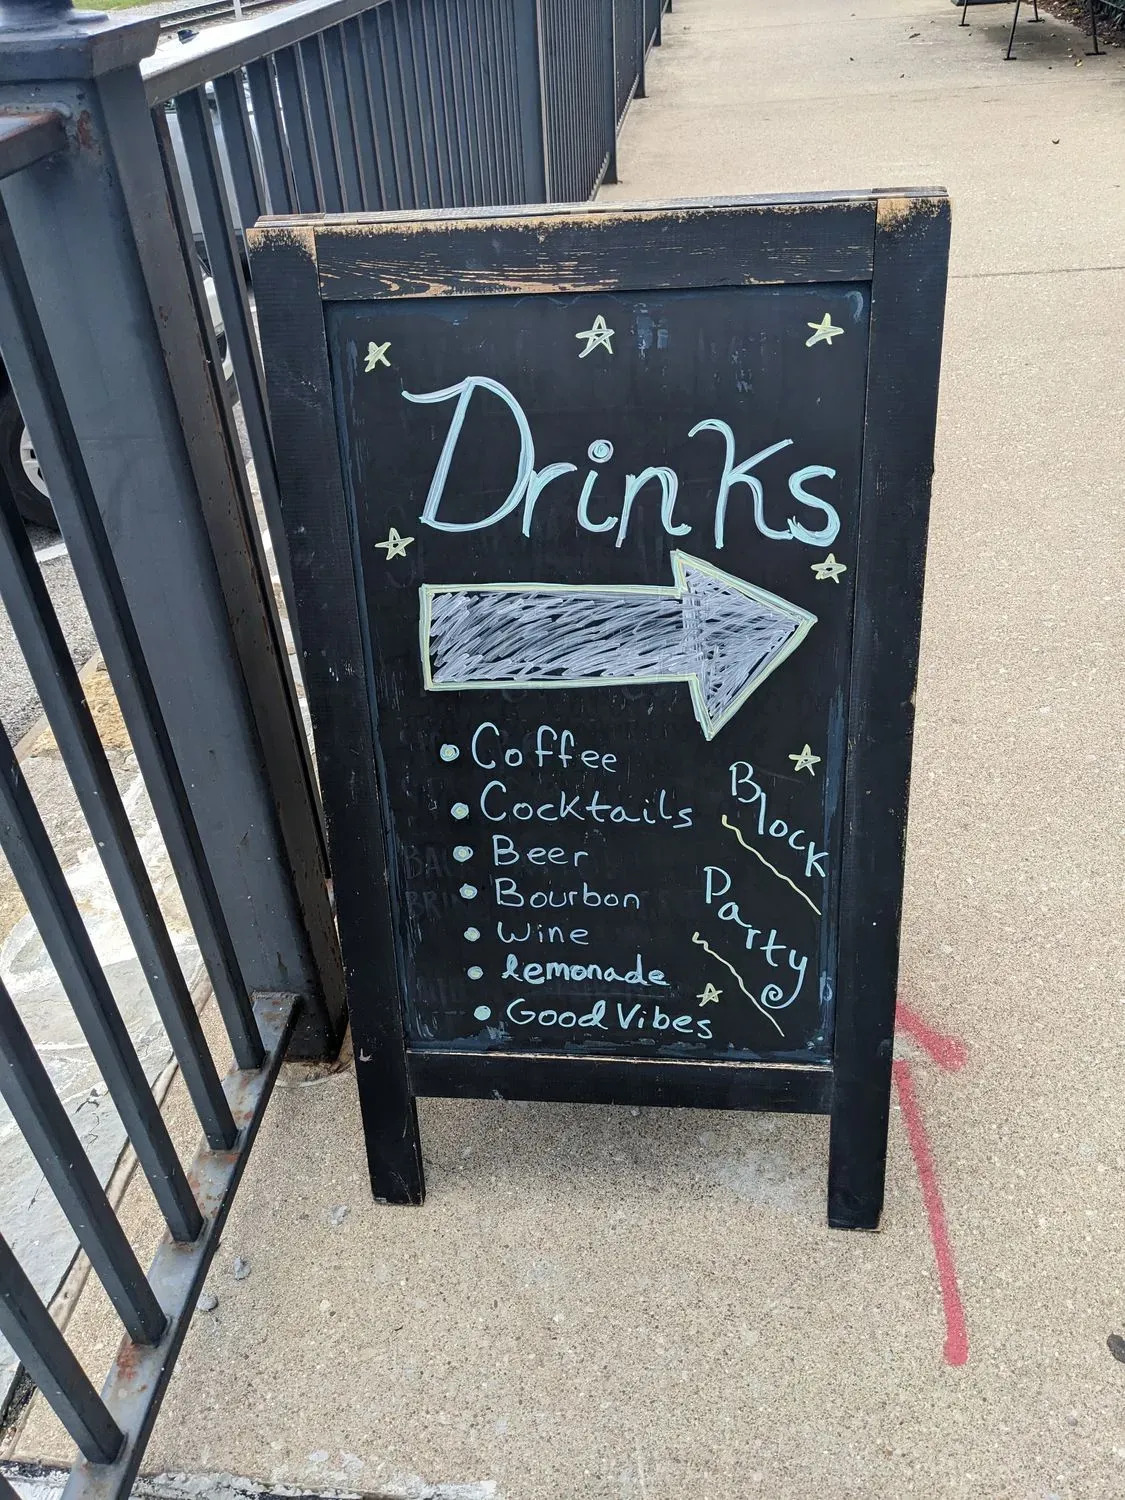 Drinks
Coffee
Cocktails
Beer
Bourbon
Wine
lemonade
Good Vibes
Block
Party